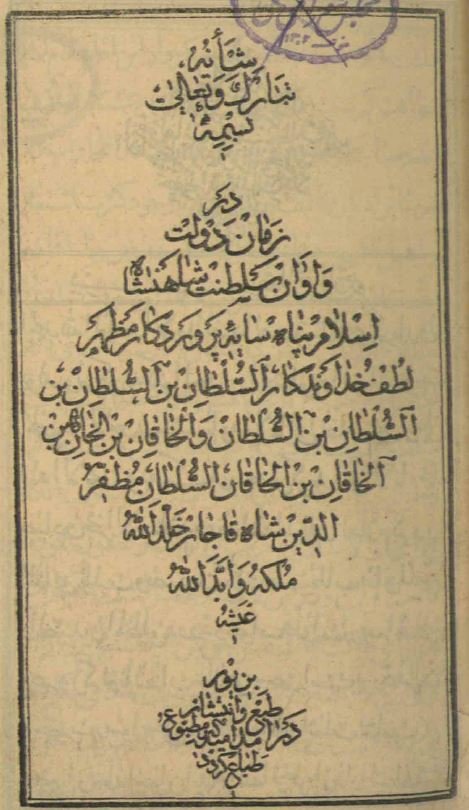 شأنه
تبارك وتعالى
بسمه
در
زمان دولت
و اوان سلطنت شاهنشاه
اسلام پناه سایه پروردکار مظهر
لطف خداوندکار السلطان بن السلطان بن
السلطان بن السلطان والخاقان بن الخاقان بن
الخاقان بن الخاقان السلطان مظفر
الدین شاه قاجار خلد الله
ملکه و ابد الله
عیشه
طبع و انتشار